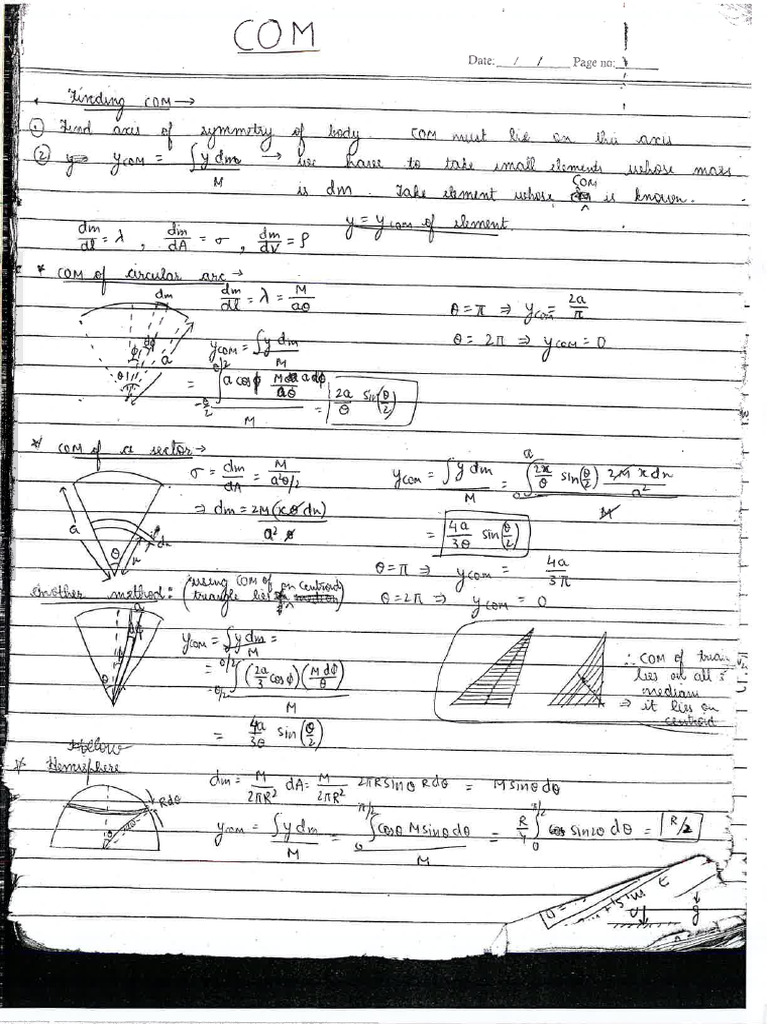 COM
Date: __/__/____ Page no: ______
Finding COM →
① Find axis of symmetry of body. COM must lie on this axis
② y⇒ y_COM = ∫y dm / M → we have to take small elements whose mass
is dm. Take element whose COM is known.
y = y_COM of element.
dm/dl = λ , dm/dA = σ , dm/dV = ρ
* COM of circular arc →
dm
dm/dl = λ = M/aθ
θ = π ⇒ y_COM = 2a/π
θ = 2π ⇒ y_COM = 0
φ dφ a θ
y_COM = ∫y dm / M
= ∫_{-θ/2}^{θ/2} a cosφ M/aθ a dφ / M = 2a/θ sin(θ/2)
* COM of a sector →
σ = dm/dA = M/(a²θ/2)
⇒ dm = 2M(xθdx)/a²θ
y_COM = ∫y dm / M = ∫_0^a 2x/θ sin(θ/2) 2M x dx/a² / M
= 4a/3θ sin(θ/2)
a θ x dx
θ = π ⇒ y_COM = 4a/3π
θ = 2π ⇒ y_COM = 0
Another method: (using COM of triangle lies on centroid)
a dφ φ θ
y_COM = ∫y dm / M =
= ∫_{-θ/2}^{θ/2} (2a/3 cosφ)(M dφ/θ) / M
= 4a/3θ sin(θ/2)
∴ COM of
lies on all 3
median
⇒ it lies on
centroid
* Hollow
Hemisphere
Rdθ θ dθ
dm = M/2πR² dA = M/2πR² 2πRsinθ Rdθ = M sinθ dθ
y_COM = ∫y dm / M = ∫_0^{π/2} cosθ M sinθ dθ / M = R/ ∫_0^{π/2} sin2θ dθ = R/2
g